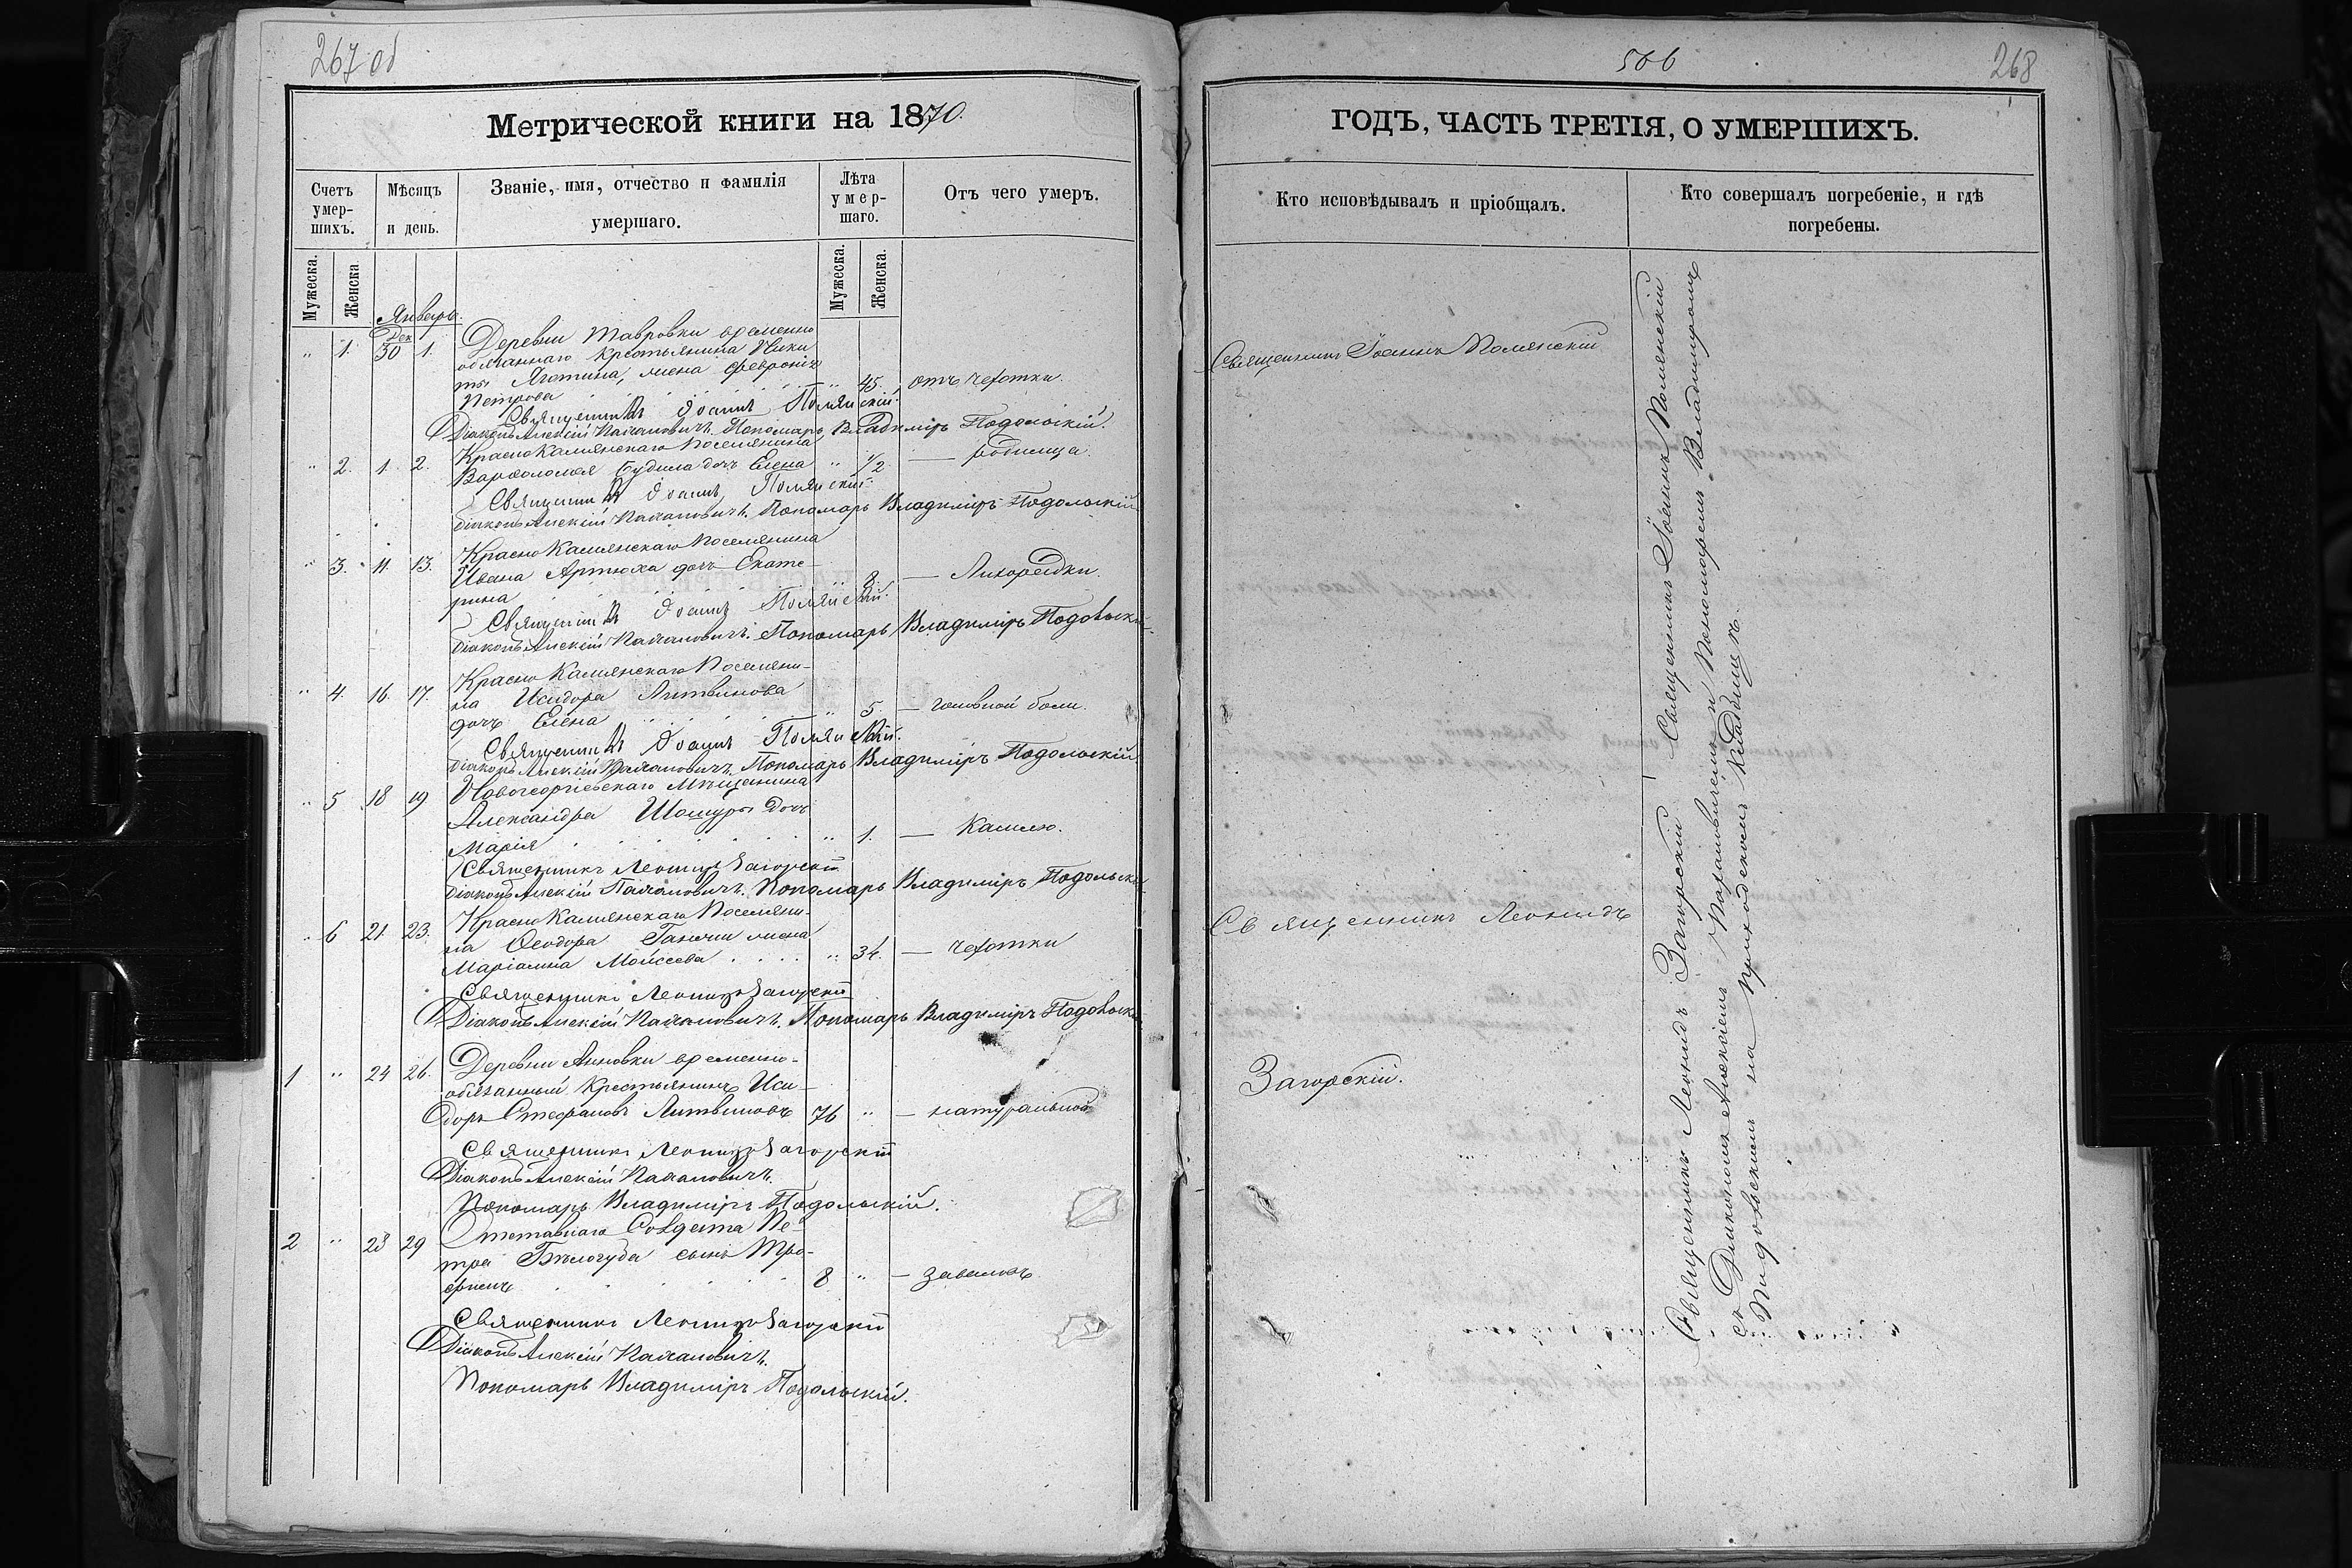 267 об
Метрической книги на 1870.
Счетъ умер-шихъ.
Мѣсяцъ и день.
Званіе, имя, отчество и фамилія умершаго.
Лѣта умер-шаго.
Отъ чего умеръ.
Мужеска.
Женска
Мужеска.
Женска.
Январь.
Дек
" 1. 30 1. Деревни Тавровки временно
обязаннаго крестьянина Ники
ты Яготина, жена Феврония
Петрова " 45. отъ чахотки.
Священникъ Іоаннъ Полянскій.
Діаконъ Алексій Пономарь Владиміръ Подольскій.
" 2. 1. 2. Краснокаменскаго поселянина
Варфоломея Будила дочь Елена " 1/2 — родимца.
Священникъ Іоаннъ Полянскій.
Діаконъ Алексій Пономарь Владиміръ Подольскій
" 3. 11. 13. Краснокаменскаго поселянина
Ивана Артюха дочь Екате-
рина " 8. — Лихорадки.
Священникъ Іоаннъ Полянскій.
Діаконъ Алексій Пономарь Владиміръ Подольскій
" 4. 16. 17. Краснокаменскаго поселяни-
на Исидора Литвинова
дочь Елена " 5. — головной боли.
Священникъ Іоаннъ Полянскій.
Діаконъ Алексій Пономарь Владиміръ Подольскій
" 5 18 19 Новогеоргіевскаго мѣщанина
Александра дочь
Марія " 1. — Кашлю.
Священникъ Леонидъ Загорскій
Діаконъ Алексій Пономарь Владиміръ Подольскій
" 6 21 23. Краснокаменскаго поселяни-
на Ѳеодора жена
Маріамна Моисеева " 34. — чахотки
Священникъ Леонидъ Загорскій
Діаконъ Алексій Пономарь Владиміръ Подольскій
1 " 24 26. Деревни Анновки временно-
обязанный крестьянинъ Иси-
доръ Стефановъ Литвиновъ 76 " — натуральной
Священникъ Леонидъ Загорскій
Діаконъ Алексій
Пономарь Владиміръ Подольскій.
2 " 28 29 Отставнаго Солдата Пе-
тра Бѣлогуба сынъ Тро-
фимъ 8 " — завалокъ
Священникъ Леонидъ Загорскій
Діаконъ Алексій
Пономарь Владиміръ Подольскій.
506
268
ГОДЪ, ЧАСТЬ ТРЕТІЯ, О УМЕРШИХЪ.
Кто исповѣдывалъ и пріобщалъ.
Кто совершалъ погребеніе, и гдѣ погребены.
Священникъ Іоаннъ Полянскій
Священникъ Леонидъ
Загорскій.
Священникъ Леонидъ Загорскій Священникъ Іоаннъ Полянскій
съ Діакономъ Алексіемъ и Пономаремъ Владиміромъ
Подольскимъ на приходскомъ кладбищѣ.